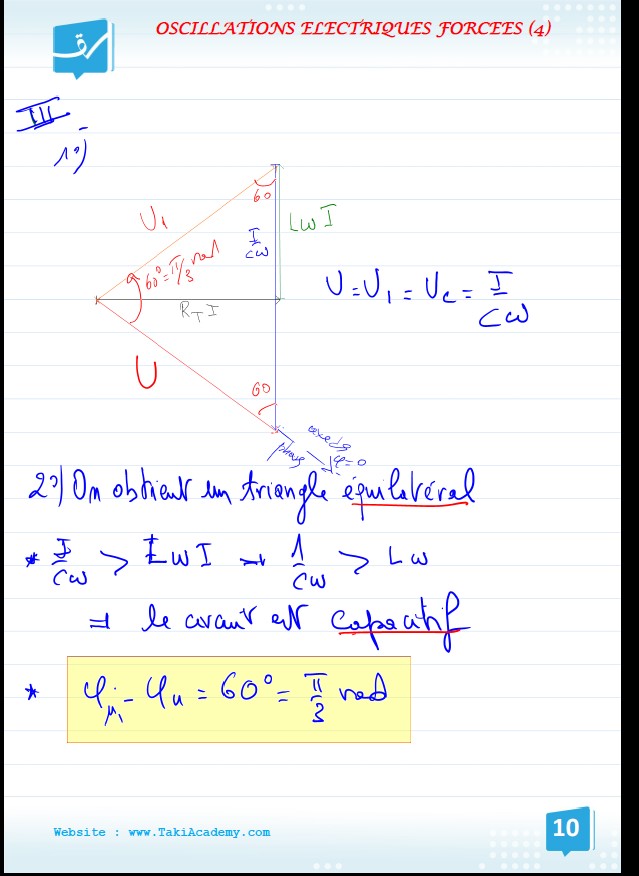 OSCILLATIONS ELECTRIQUES FORCEES (4)
III
1°)
60
U₁
LωI
I/Cω
60°=π/3 rad
R_T I
U=U₁=U_C=I/Cω
U
60
axe des
phases
φ=0
2°) On obtient un triangle équilatéral
* I/Cω > LωI → 1/Cω > Lω
⇒ le circuit est capacitif
* φ_u₁ - φ_u = 60° = π/3 rad
Website : www.TakiAcademy.com
10